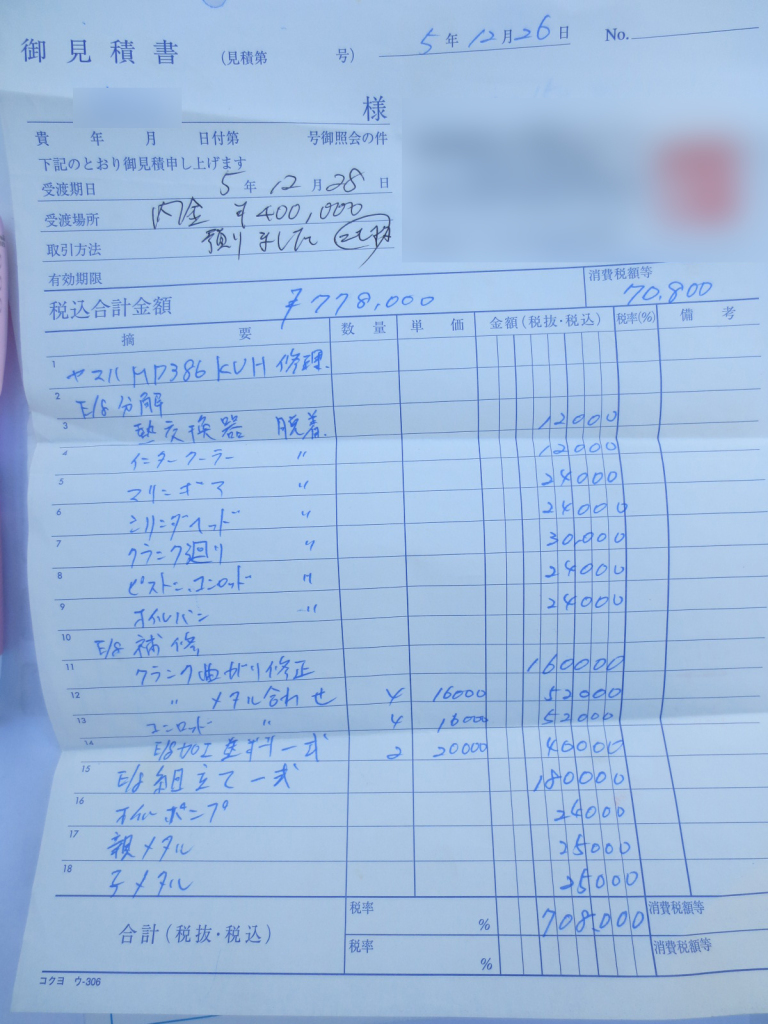 御見積書 (見積第 号) 5年12月26日 No.
様
貴 年 月 日付第 号御照会の件
下記のとおり御見積申し上げます
受渡期日 5年12月28日
受渡場所 内金 ¥400,000
取引方法 預りました
有効期限
税込合計金額 ¥778,000 消費税額等 70,800
摘要 数量 単価 金額(税抜・税込) 税率(%) 備考
1 ヤンマー MD386 KUH 修理
2 E/g 分解
3 熱交換器 脱着 12000
4 インタークーラー 〃 12000
5 マリンギア 〃 24000
6 シリンダヘッド 〃 24000
7 クランク廻り 〃 30,000
8 ピストン、コンロッド 〃 24000
9 オイルパン 〃 24000
10 E/g 補修
11 クランク曲がり修正 160000
12 〃 メタル合わせ 4 16000 52000
13 コンロッド 〃 4 16000 52000
14 E/g 加工 一式 2 20000 40000
15 E/g 組立て一式 180000
16 オイルポンプ 24000
17 親メタル 25000
18 子メタル 25000
合計(税抜・税込) 税率 % 708,000 消費税額等
税率 % 消費税額等
コクヨ ウ-306